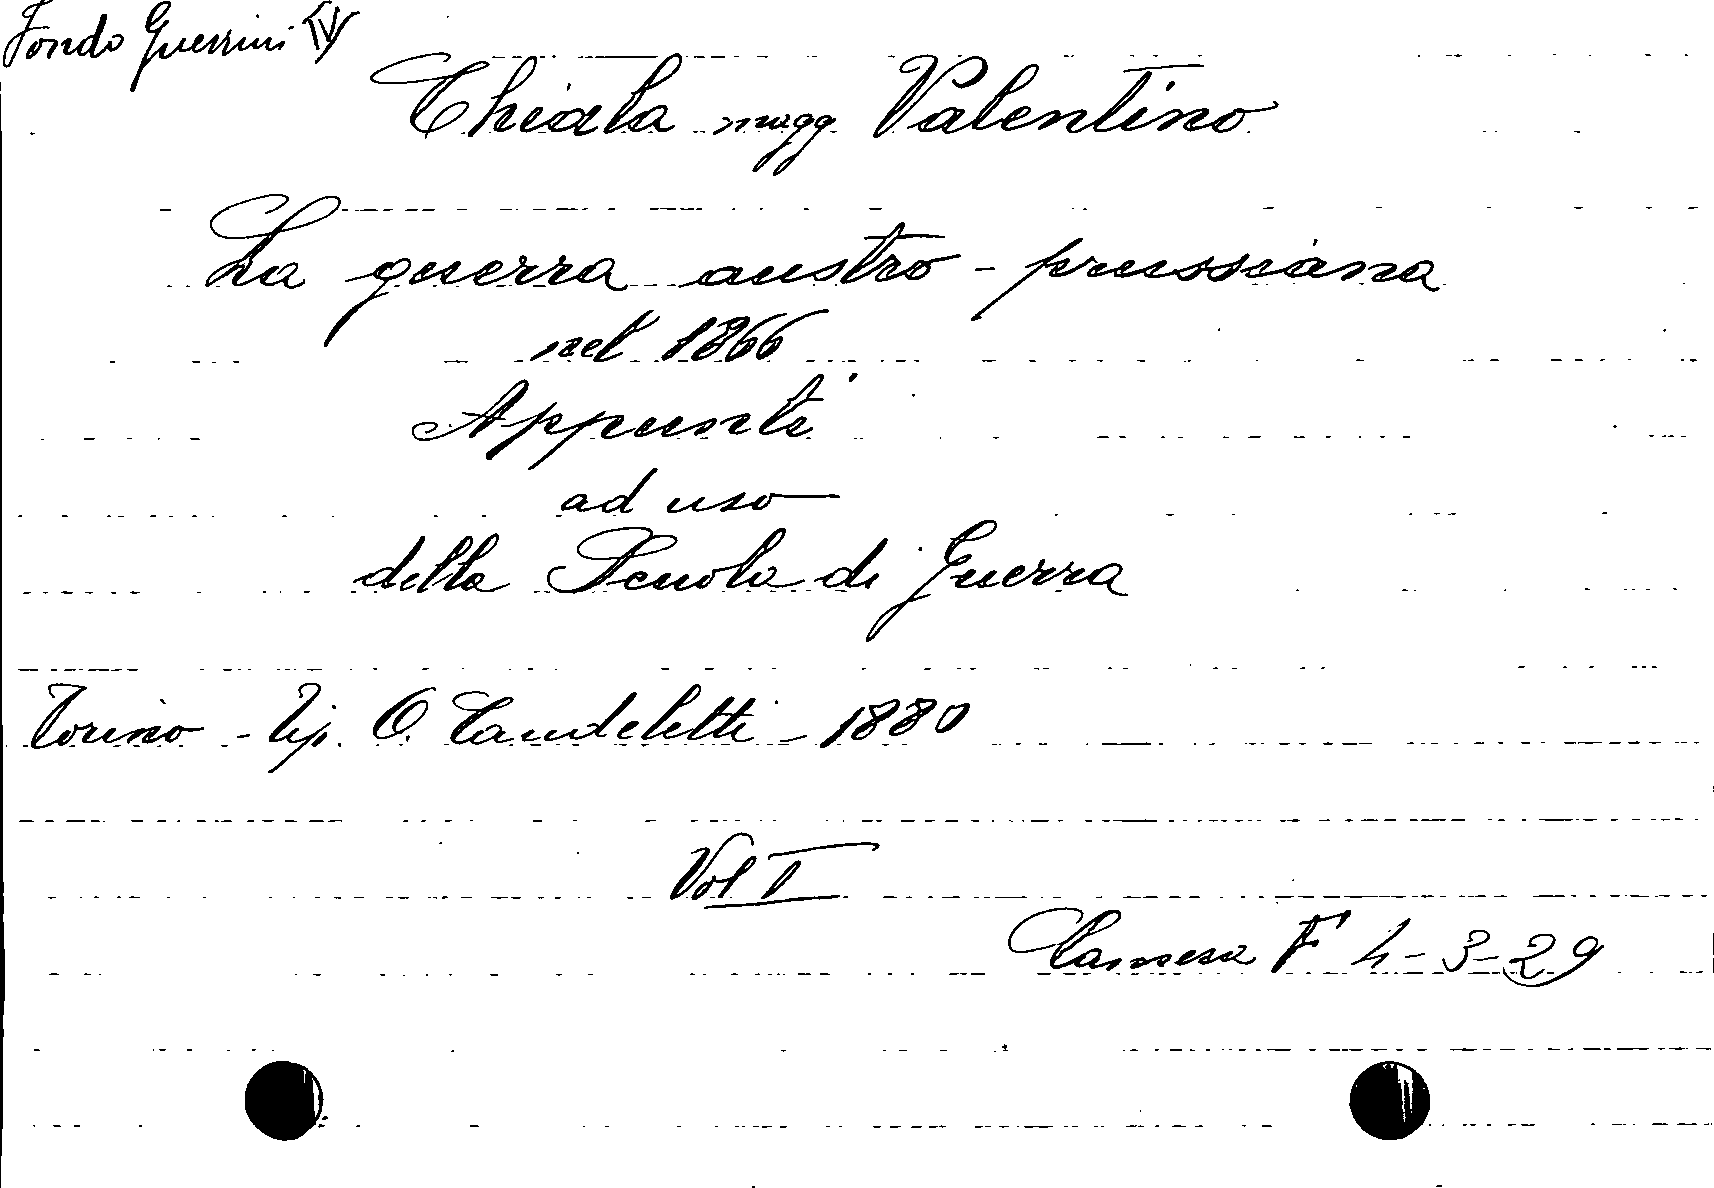 Fondo Guerrini IV
Chiala magg Valentino
La guerra austro-prussiana
nel 1866
Appunti
ad uso
della Scuola di Guerra
Torino - Tip. O. Candeletti - 1880
Vol I
Camera F 4-3-29